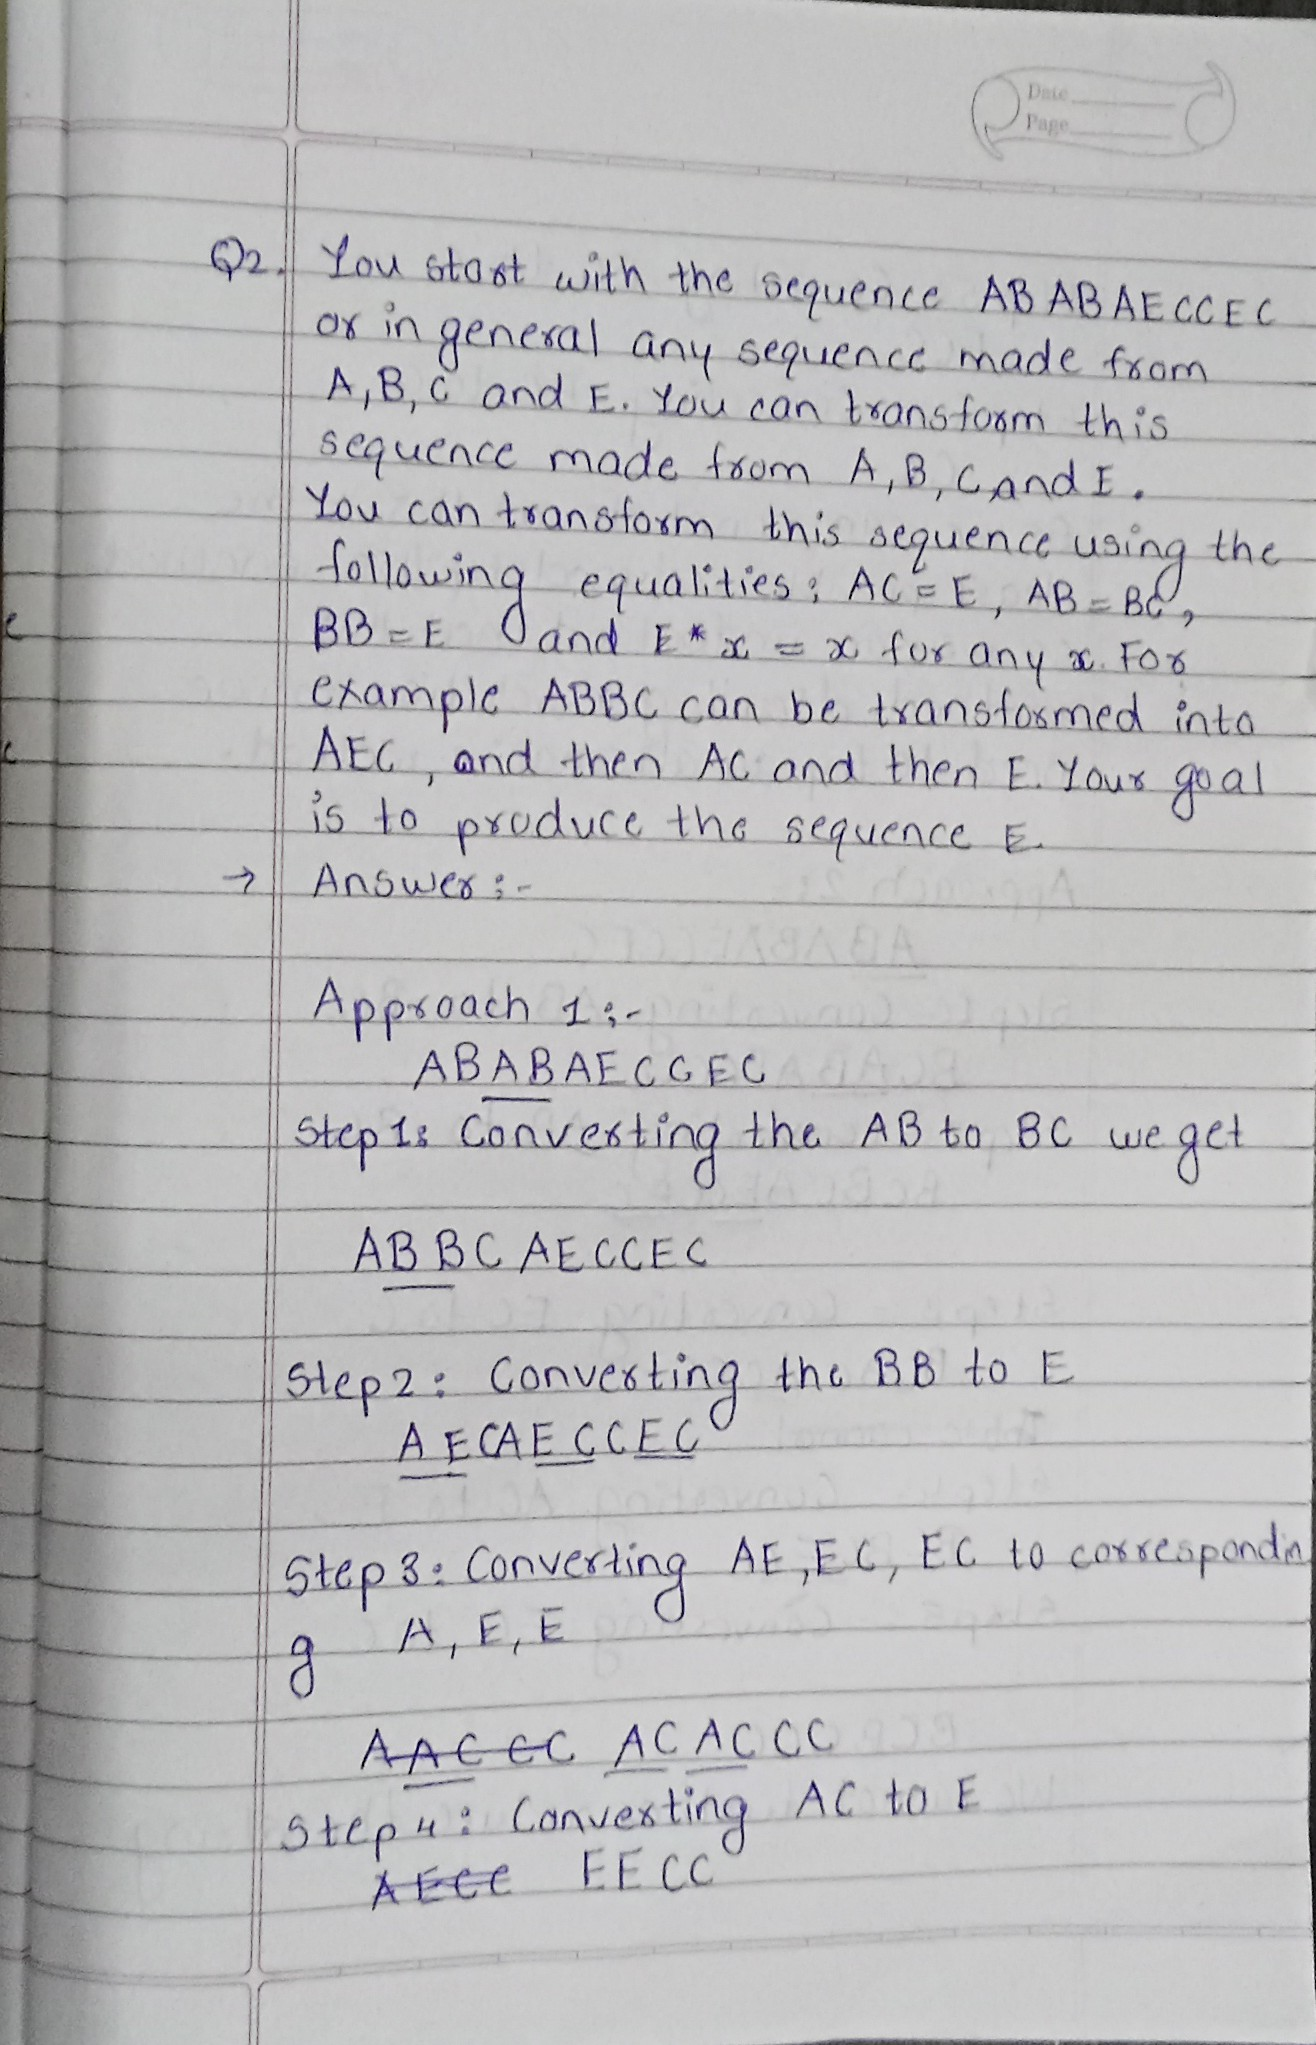 Date
Page
Q2. You start with the sequence ABABAECCEC
or in general any sequence made from
A,B,C and E. You can transform this
sequence made from A,B,C and E.
You can transform this sequence using the
following equalities: AC=E, AB=BC,
BB=E and E*x = x for any x. For
example ABBC can be transformed into
AEC, and then AC and then E. Your goal
is to produce the sequence E.
→ Answer:-
Approach 1:-
ABABAECCEC
Step 1: Converting the AB to BC we get
ABBCAECCEC
Step 2: Converting the BB to E
AECAECCEC
Step 3: Converting AE,EC, EC to correspondin
g A, E, E
AACCC ACACCC
Step 4: Converting AC to E
AECC EECC